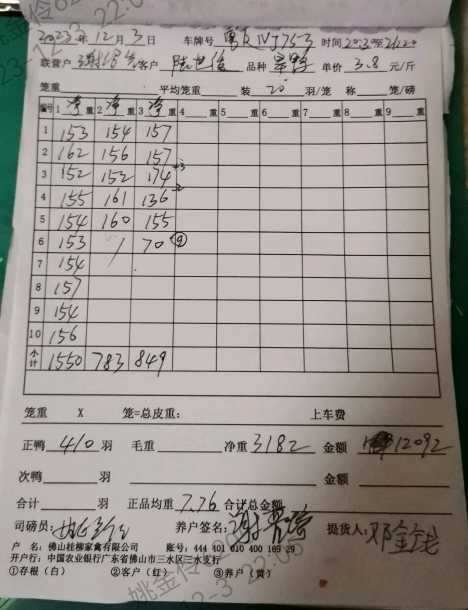 2023年12月3日 车牌号 时间
联营户 客户 品种 单价 3.8 元/斤
笼重 平均笼重 装 20 羽/笼 称 笼/磅
编号 1 净 重 2 净 重 3 净 重 4 重 5 重 6 重 7 重 8 重 9 重
1 153 154 157
2 162 156 157
3 152 152 174 +3
4 155 161 136 -2
5 154 160 155
6 153 / 70 ⑨
7 154
8 157
9 154
10 156
小计 1550 783 849
笼重 X 笼=总皮重: 上车费
正鸭 410 羽 毛重 净重 3182 金额 12092
次鸭 羽 金额
合计 羽 正品均重 7.76 合计总金额
司磅员: 养户签名: 提货人: 邓金钱
户 名: 佛山桂柳家禽有限公司 账号: 444 401 010 400 169 29
开户行: 中国农业银行广东省佛山市三水区三水支行
①存根(白) ②客户(红) ③养户(黄)